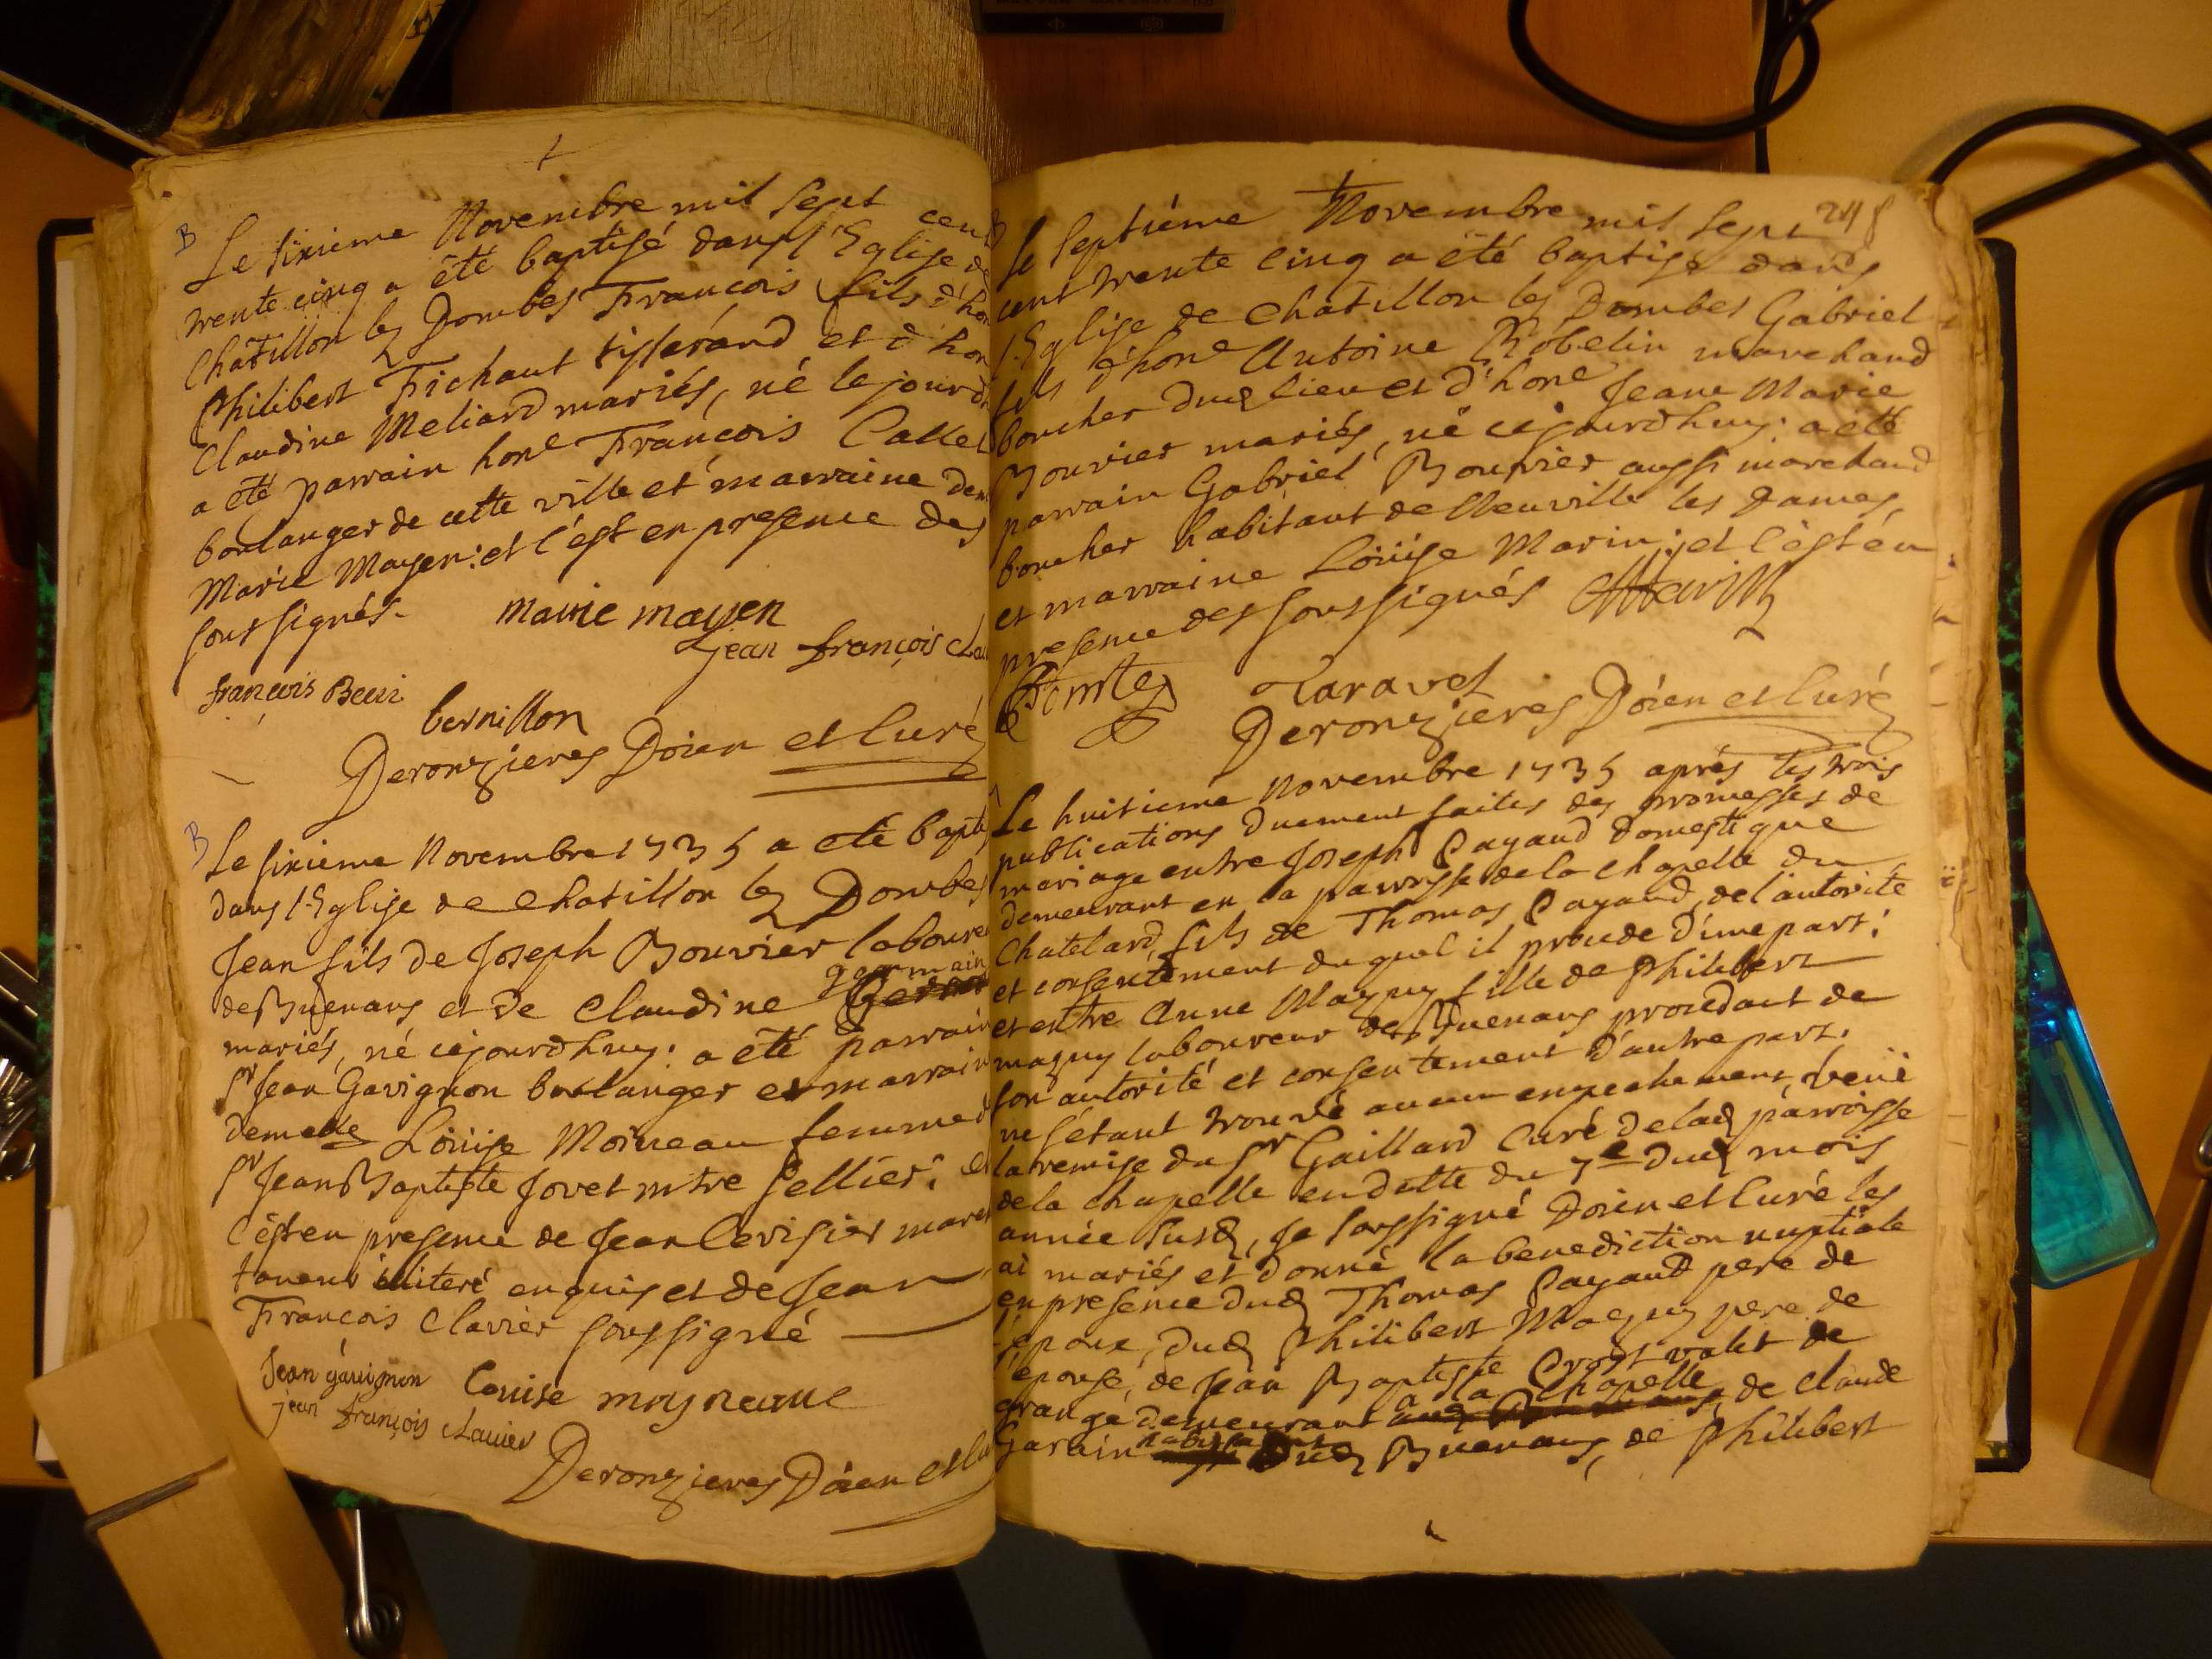 B
Le sixieme Novembre mil sept cent
trente cinq a été baptisé dans l'Eglise de
Châtillon lez Dombes François fils d'hon
Philibert Trichaut tisserand et d'hon
Claudine Meliard mariés, né le jour d
a été parrain hone François Callet
boulanger de cette ville et marraine dem
Marie Mayen: et c'est en presence des
soussignés.
marie mayen
jean françois clau
françois
bernillon
Deronzieres Doien et Curé
B
Le sixieme Novembre 1735 a été bapti
dans l'Eglise de Chatillon lez Dombes
Jean fils de Joseph Bouvier laboure
de Buenans et de Claudine germain
mariés, né cejourdhuy: a été parrain
Sr Jean Gavignon boulanger et marrain
demelle Loüise Moineau femme d
Sr Jean Baptiste Jovet mtre sellier; et
c'est en presence de Jean Cerisier mar
enquis et de Jean
François Clavier soussigné
Jean gavignon
Louise moyneaue
jean françois clavier
Deronzieres Doien et Cu
248
Le Septiéme Novembre mil Sept
cent trente cinq a été baptisé dans
l'Eglise de Chatillon lez Dombes Gabriel
fils d'hone Antoine Robelin marchand
boucher dud lieu et d'hone Jeane Marie
Bouvier mariés, né cejourdhuy: a été
parrain Gabriel Bouvier aussi marchand
boucher habitant de Neuville les Dames,
et marraine Loüise Marin: et c'est en
presence des soussignés
Taravel
Deronzieres Doien et Curé
Le huitieme Novembre 1735 aprés les trois
publications duement faites des promesses de
mariage entre Joseph Payaud domestique
demeurant en la parroisse de la Chapelle du
Chatelard, fils de Thomas Payaud, de l'autorité
et consentement duquel il procede d'une part;
et entre Anne Mazuy fille de Philibert
mazuy laboureur de Buenans procedant de
son autorité et consentement d'autre part.
ne s'étant trouvé aucun empechement, veüe
la remise du Sr Gaillard Curé de lad parroisse
de la Chapelle en datte du 7e dud mois
année susd, Je soussigné Doien et Curé les
ai mariés et donné la benediction nuptiale
en presence dud Thomas Payaud pere de
l'epoux, dud Philibert Mazuy pere de
l'epouse, de Jean Baptiste Prost valet de
grange demeurant a la Chapelle, de Claude
Garain dud Buenans, de Philibert